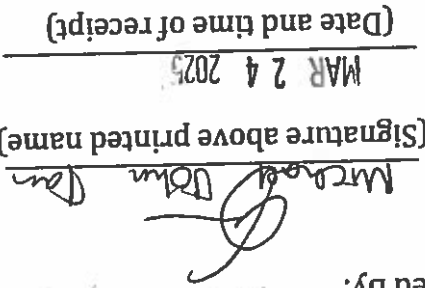 ed by:
Michael John
(Signature above printed name)
MAR 2 4 2025
(Date and time of receipt)